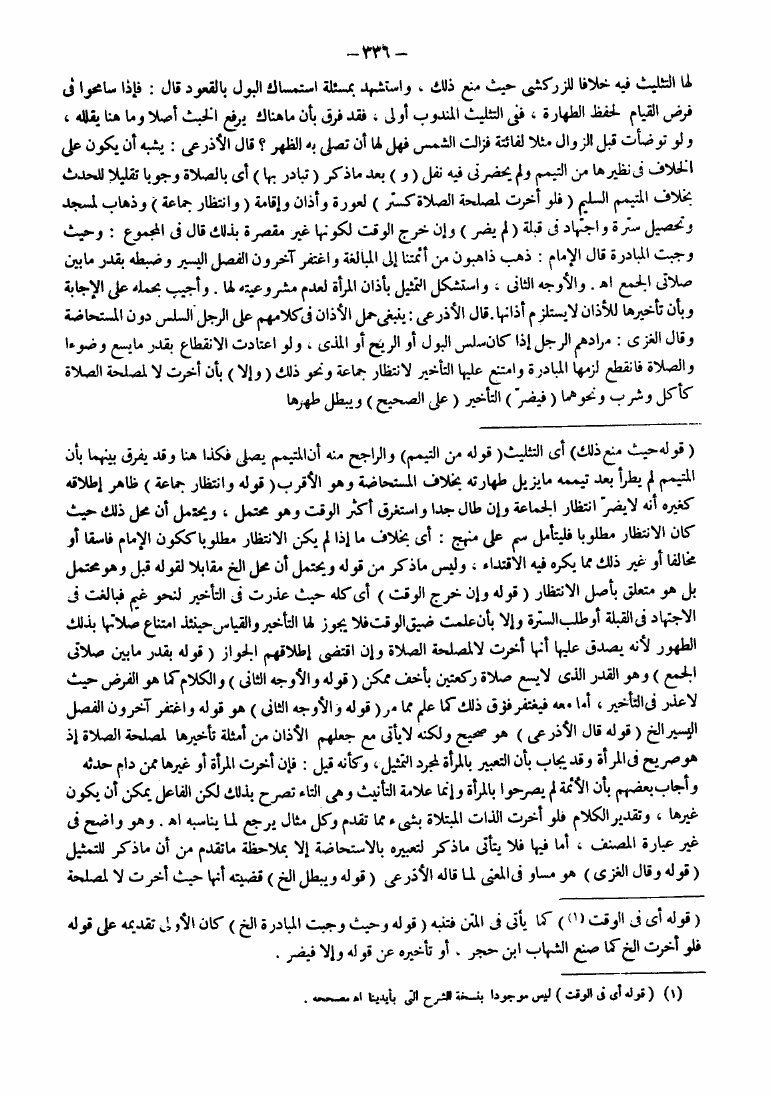 – ٣٣٦ –
لها التثليث فيه خلافا للزركشى حيث منع ذلك ، واستشهد بمسئلة استمساك البول بالقعود قال : فإذا سامحوا فى
فرض القيام لحفظ الطهارة ، ففى التثليث المندوب أولى ، فقد فرق بأن ماهناك يرفع الخبث أصلا وما هنا يقلله ،
ولو توضأت قبل الزوال مثلا لفائتة فزالت الشمس فهل لها أن تصلى به الظهر ؟ قال الأذرعى : يشبه أن يكون على
الخلاف فى نظيرها من التيمم ولم يحضرنى فيه نفل ( و ) بعد ماذكر ( تبادر بها ) أى بالصلاة وجوبا تقليلا للحدث
بخلاف المتيمم السليم ( فلو أخرت لمصلحة الصلاة كستر ) لعورة وأذان وإقامة ( وانتظار جماعة ) وذهاب لمسجد
وتحصيل سترة واجتهاد فى قبلة ( لم يضر ) وإن خرج الوقت لكونها غير مقصرة بذلك قال فى المجموع : وحيث
وجبت المبادرة قال الإمام : ذهب ذاهبون من أئمتنا إلى المبالغة واغتفر آخرون الفصل اليسير وضبطه بقدر مابين
صلاتى الجمع اه . والأوجه الثانى ، واستشكل التمثيل بأذان المرأة لعدم مشروعيته لها . وأجيب بحمله على الإجابة
وبأن تأخيرها للأذان لايستلزم أذانها.قال الأذرعى : ينبغى حمل الأذان فى كلامهم على الرجل السلس دون المستحاضة
وقال الغزى : مرادهم الرجل إذا كان سلس البول أو الريح أو المذى ، ولو اعتادت الانقطاع بقدر مايسع وضوءا
والصلاة فانقطع لزمها المبادرة وامتنع عليها التأخير لانتظار جماعة ونحو ذلك ( وإلا ) بأن أخرت لا لمصلحة الصلاة
كأكل وشرب ونحوهما ( فيضرّ ) التأخير ( على الصحيح ) ويبطل طهرها
( قوله حيث منع ذلك) أى التثليث( قوله من التيمم) والراجح منه أن المتيمم يصلى فكذا هنا وقد يفرق بينهما بأن
المتيمم لم يطرأ بعد تيممه مايزيل طهارته بخلاف المستحاضة وهو الأقرب( قوله وانتظار جماعة ) ظاهر إطلاقه
كغيره أنه لايضرّ انتظار الجماعة وإن طال جدا واستغرق أكثر الوقت وهو محتمل ، ويحتمل أن محل ذلك حيث
كان الانتظار مطلوبا فليتأمل سم على منهج : أى بخلاف ما إذا لم يكن الانتظار مطلوبا ككون الإمام فاسقا أو
مخالفا أو غير ذلك مما يكره فيه الاقتداء ، وليس ماذكر من قوله ويحتمل أن محل الخ مقابلا لقوله قبل وهو محتمل
بل هو متعلق بأصل الانتظار ( قوله وإن خرج الوقت ) أى كله حيث عذرت فى التأخير لنحو غيم فبالغت فى
الاجتهاد فى القبلة أو طلب السترة وإلا بأن علمت ضيق الوقت فلا يجوز لها التأخير والقياس حينئذ امتناع صلاتها بذلك
الطهور لأنه يصدق عليها أنها أخرت لالمصلحة الصلاة وإن اقتضى إطلاقهم الجواز ( قوله بقدر مابين صلاتى
الجمع ) وهو القدر الذى لايسع صلاة ركعتين بأخف ممكن ( قوله والأوجه الثانى ) والكلام كما هو الفرض حيث
لاعذر فى التأخير ، أما معه فيغتفر فوق ذلك كما علم مما مر( قوله والأوجه الثانى ) هو قوله واغتفر آخرون الفصل
اليسير الخ ( قوله قال الأذرعى ) هو صحيح ولكنه لايأتى مع جعلهم الأذان من أمثلة تأخيرها لمصلحة الصلاة إذ
هو صريح فى المرأة وقد يجاب بأن التعبير بالمرأة لمجرد التمثيل، وكأنه قيل : فإن أخرت المرأة أو غيرها ممن دام حدثه
وأجاب بعضهم بأن الأئمة لم يصرحوا بالمرأة وإنما علامة التأنيث وهى التاء تصرح بذلك لكن الفاعل يمكن أن يكون
غيرها ، وتقدير الكلام فلو أخرت الذات المبتلاة بشىء مما تقدم وكل مثال يرجع لما يناسبه اه . وهو واضح فى
غير عبارة المصنف ، أما فيها فلا يتأتى ماذكر لتعبيره بالاستحاضة إلا بملاحظة ماتقدم من أن ماذكر للتمثيل
( قوله وقال الغزى ) هو مساو فى المعنى لما قاله الأذرعى ( قوله ويبطل الخ ) قضيته أنها حيث أخرت لا لمصلحة
( قوله أى فى الوقت (١) ) كما يأتى فى المتن فتنبه ( قوله وحيث وجبت المبادرة الخ ) كان الأولى تقديمه على قوله
فلو أخرت الخ كما صنع الشهاب ابن حجر ، أو تأخيره عن قوله وإلا فيضر .
(١) ( قوله أى فى الوقت ) ليس موجودا بنسخة الشرح التى بأيدينا اه مصححه .